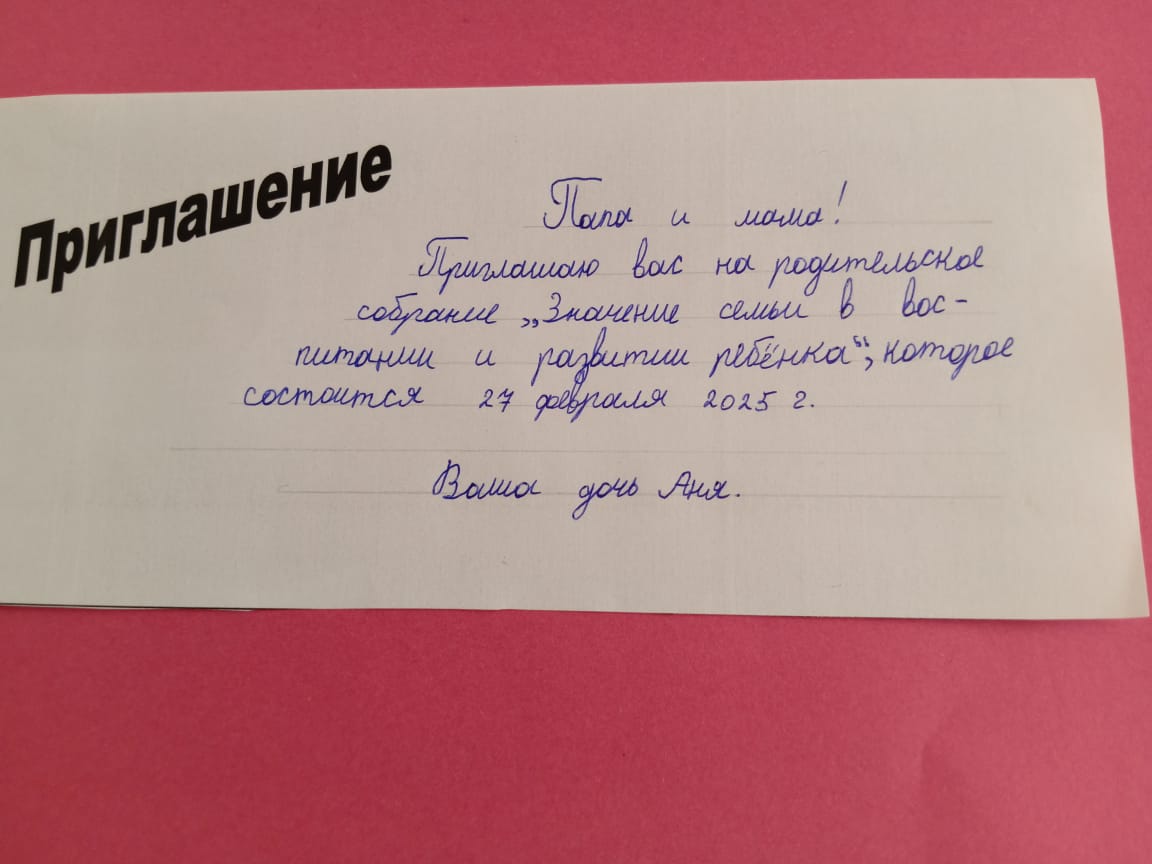 Приглашение
Папа и мама!
Приглашаю вас на родительское
собрание „Значение семьи в вос-
питании и развитии ребёнка“, которое
состоится 27 февраля 2025 г.
Ваша дочь Аня.